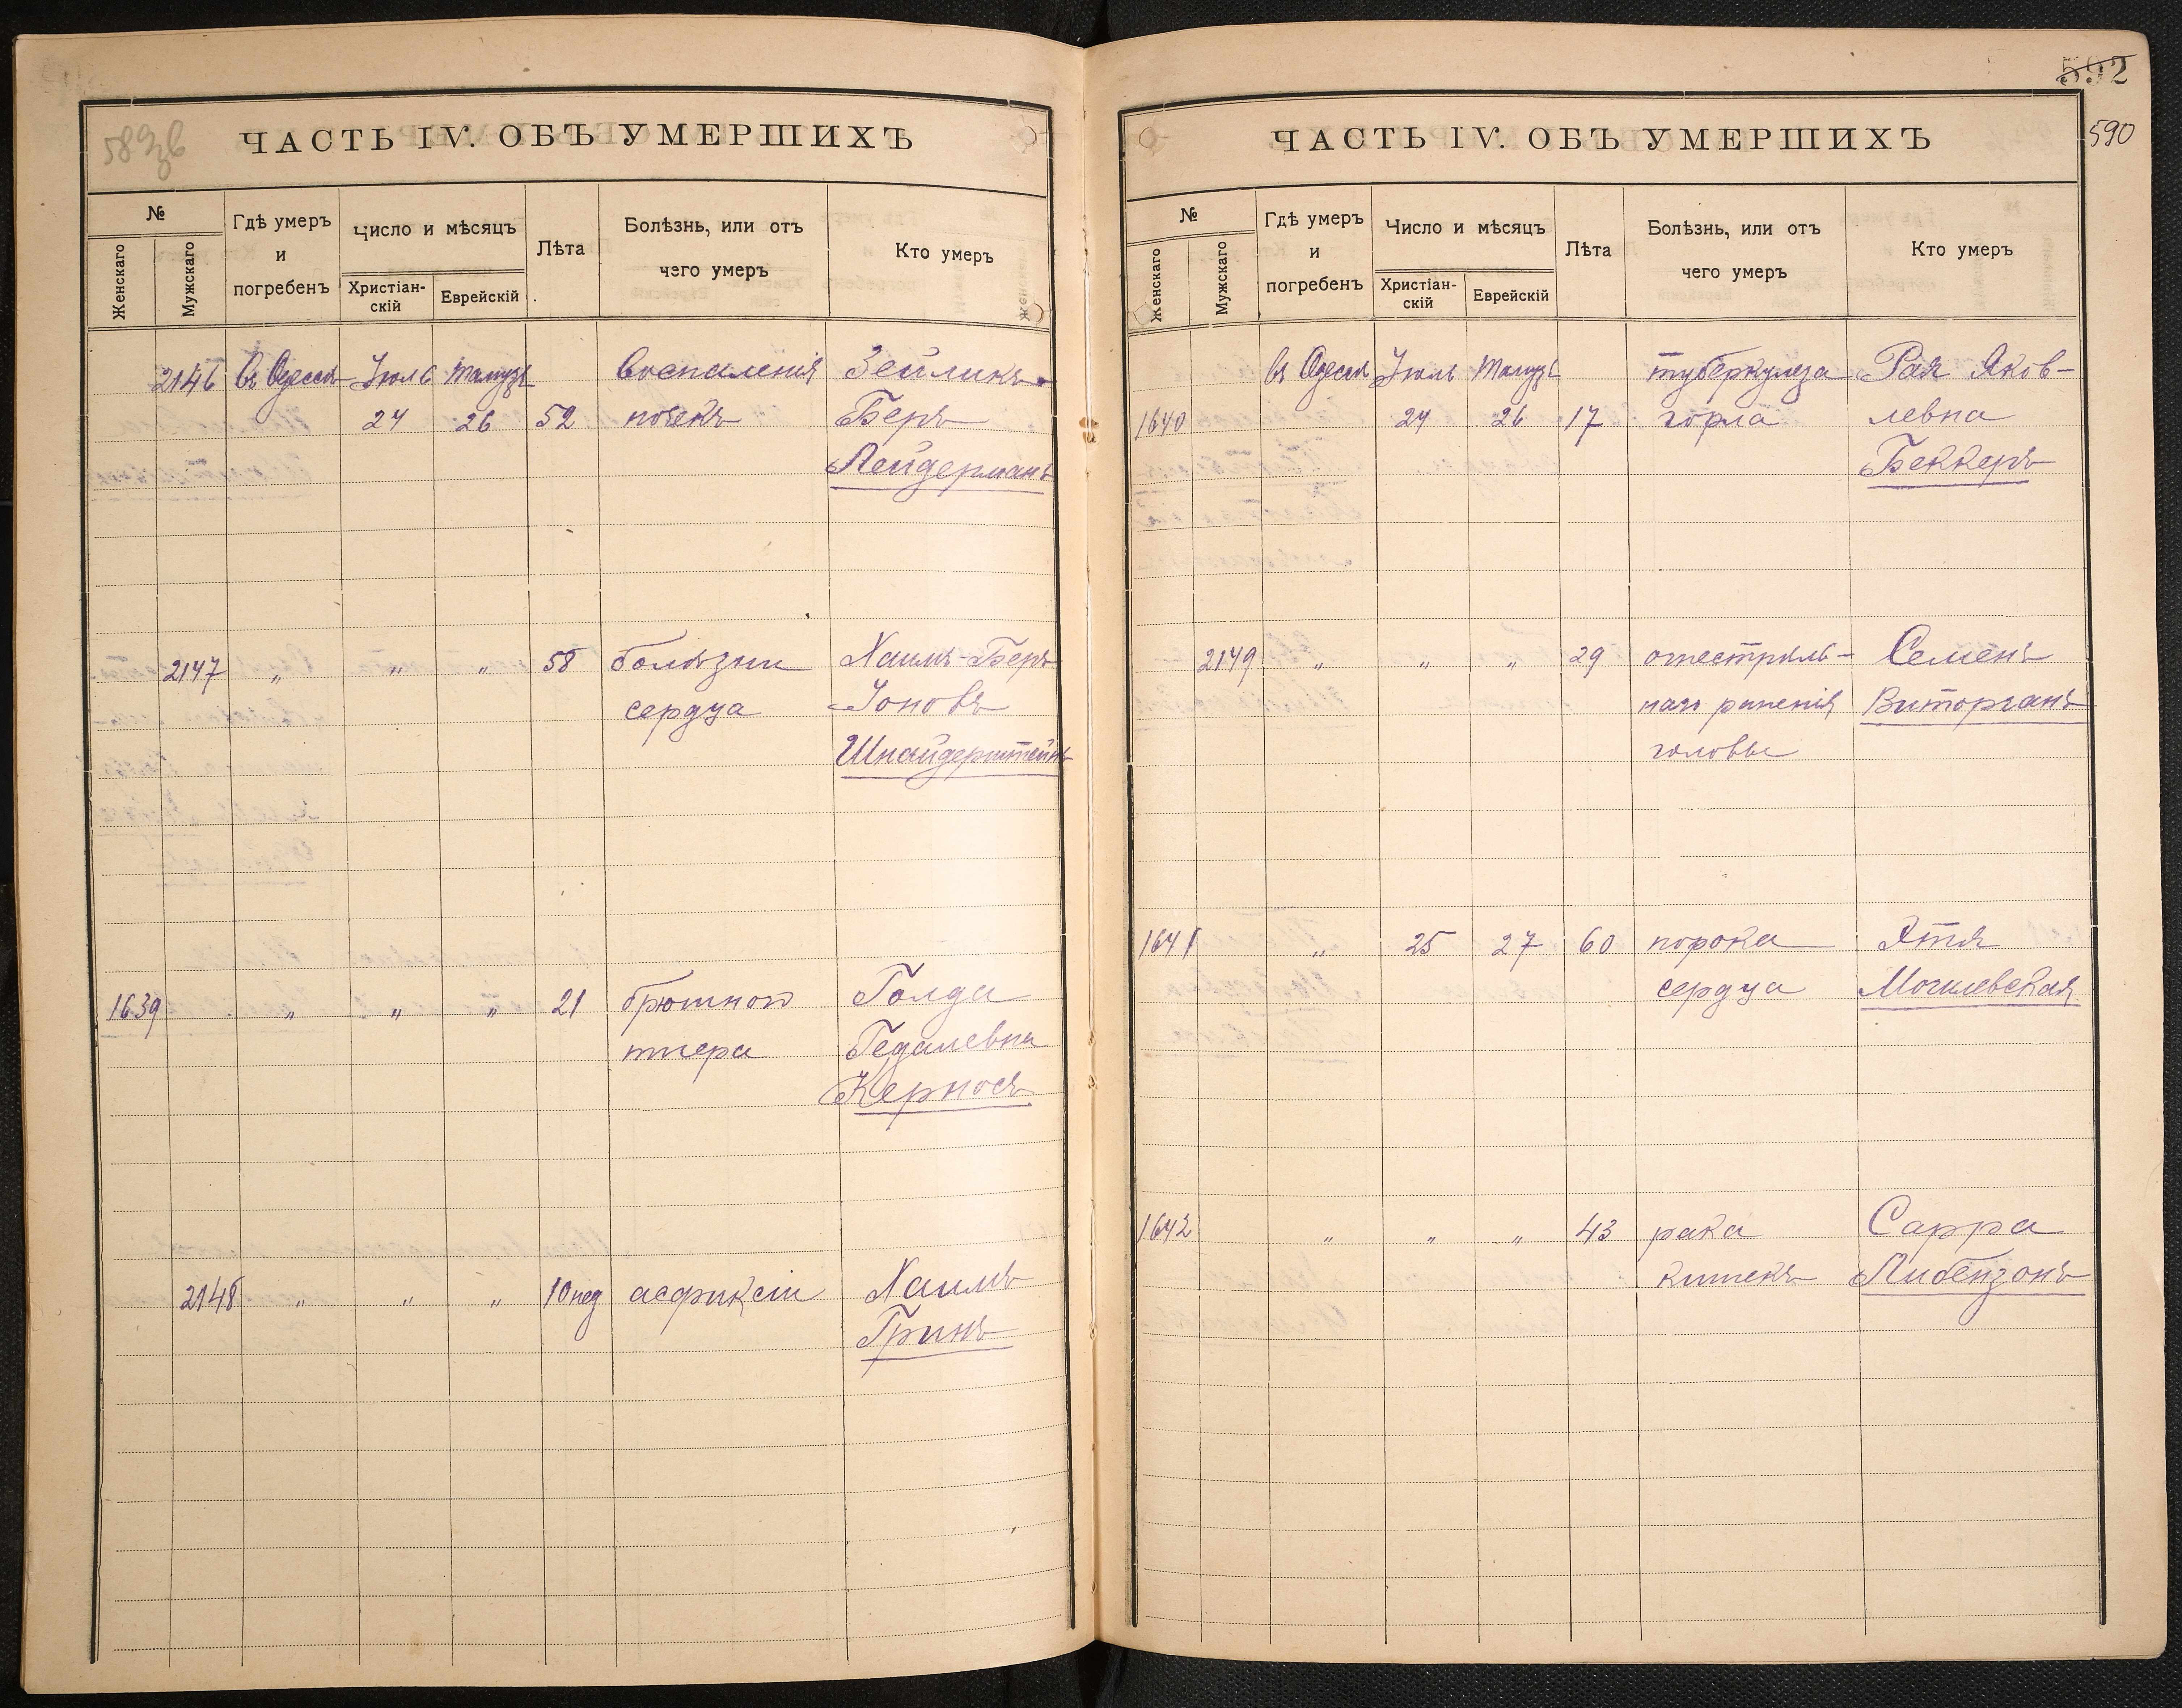 ЧАСТЬ IV. ОБЪ УМЕРШИХЪ
№
Женскаго
Мужскаго
Гдѣ умеръ
и
погребенъ
Число и мѣсяцъ
Христіан-
скій
Еврейскій
Лѣта
Болѣзнь, или отъ
чего умеръ
Кто умеръ
2146 Въ Одессѣ Іюль Тамузъ Воспаленія Зейликъ
24 26 52 почекъ Беръ
Лейдерманъ
2147 „ „ „ 58 болѣзни Хаимъ-Беръ
сердца Іоновъ
Шнайдерштейнъ
1639 „ „ „ 21 брюшного Голда
тифа Гедалевна
Керносъ
2148 „ „ „ 10 нед асфиксіи Хаимъ
Гринъ
592
590
ЧАСТЬ IV. ОБЪ УМЕРШИХЪ
№
Женскаго
Мужскаго
Гдѣ умеръ
и
погребенъ
Число и мѣсяцъ
Христіан-
скій
Еврейскій
Лѣта
Болѣзнь, или отъ
чего умеръ
Кто умеръ
въ Одессѣ Іюль Тамузъ туберкулеза Рая Яков-
1640 24 26 17 горла левна
Беккеръ
2149 „ „ „ 29 огнестрѣль- Семенъ
наго раненія Виторганъ
головы
1641 „ 25 27 60 порока Этля
сердца Могилевская
1642 „ „ „ 43 рака Сарра
кишекъ Либензонъ